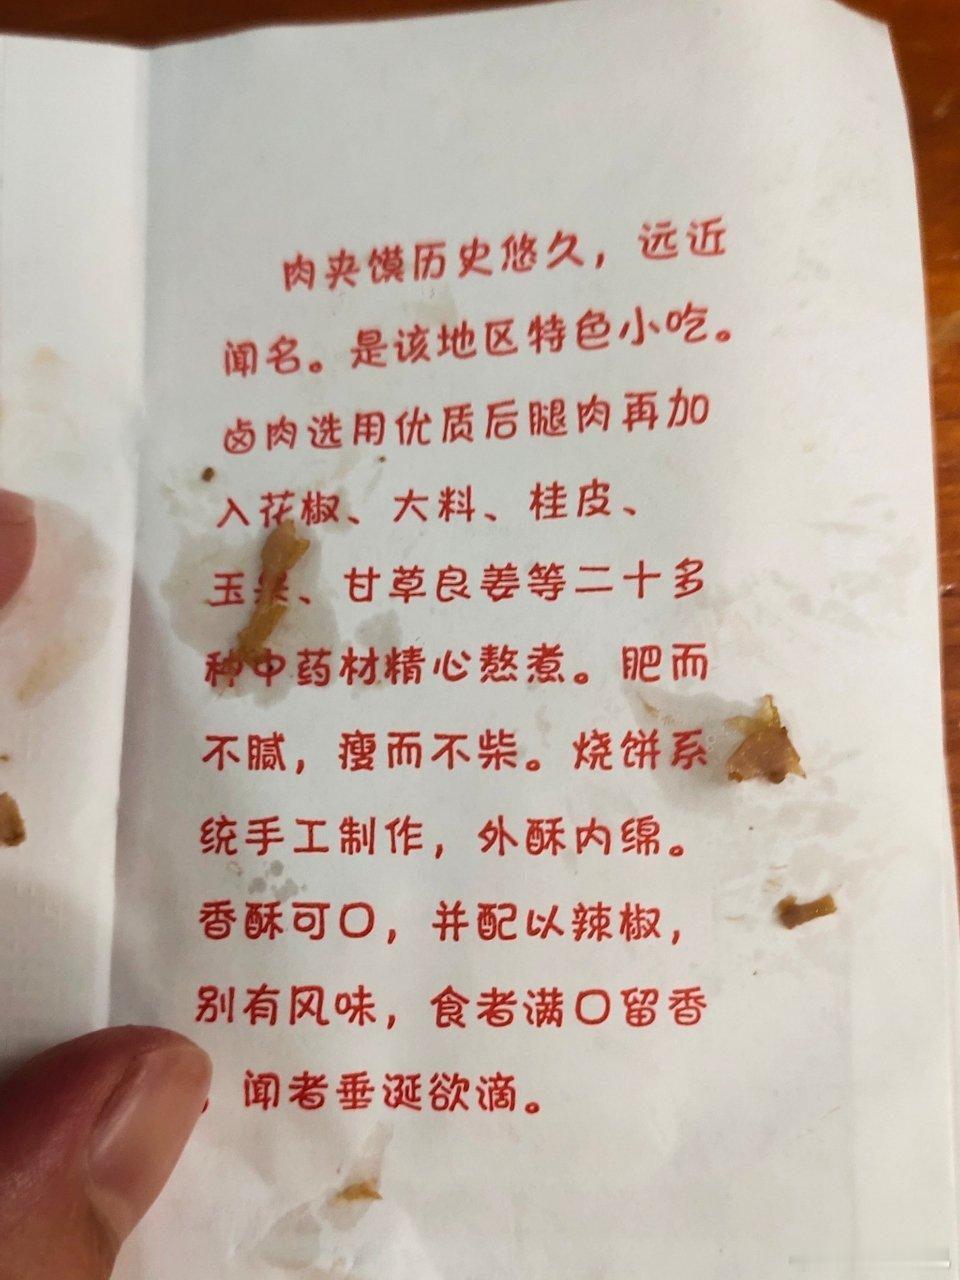 肉夹馍历史悠久，远近
闻名。是该地区特色小吃。
卤肉选用优质后腿肉再加
入花椒、大料、桂皮、
玉果、甘草良姜等二十多
种中药材精心熬煮。肥而
不腻，瘦而不柴。烧饼系
统手工制作，外酥内绵。
香酥可口，并配以辣椒，
别有风味，食者满口留香
，闻者垂涎欲滴。